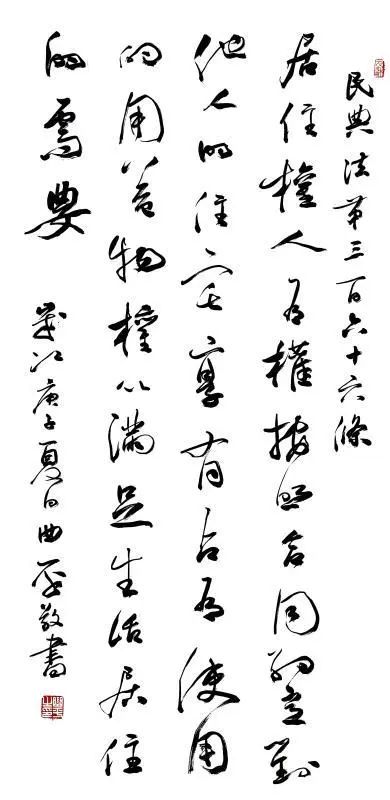 民典法第三百六十六條
居住權人有權按照合同約定對
他人的住宅享有占有使用
的用益物權以滿足生活居住
的需要
歲次庚子夏日曲敬書